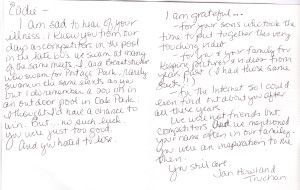 Eadie -
I am sad to hear of your
illness. I knew you from our
days as competitors in the pool
in the late 60's. We swam at many
of the same meets. I was a breaststroker
who swam for Portage Park. I rarely
swam in the same events as you
but I do remember a 200 IM in
an outdoor pool in Oak Park.
I thought I'd have a chance to
win. But... no such luck.
You were just too good.
And you hated to lose.
I am grateful...
- for your sons who took the
time to put together this very
touching video
- for you & your family for
keeping pictures & videos from
years past (I had those same
suits!!)
- to the Internet so I could
even find out about you after
all these years.
We were not friends but
competitors and we mentioned
your name often in our family.
You were an inspiration to me
then.
You still are.
Jan Howland
Truchan